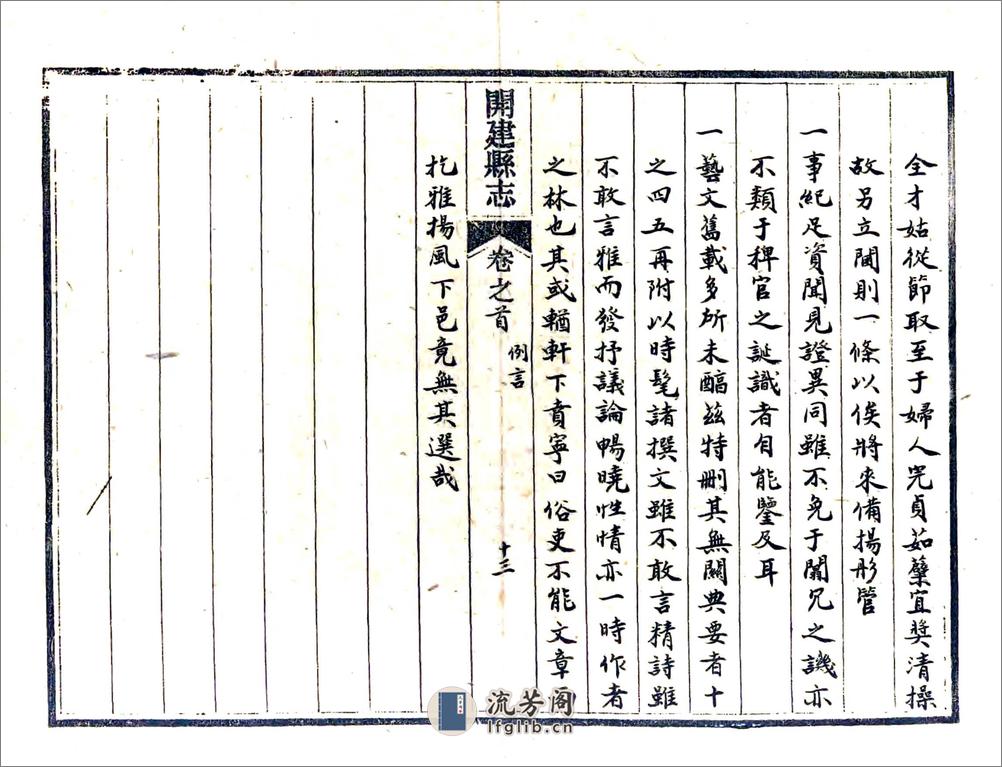 全才姑從節取至于婦人完貞茹蘗宜奬清操
故另立閫則一條以俟將來備揚彤管
一事紀足資聞見證異同雖不免于闌冗之譏亦
不類于稗官之誕識者自能鑒及耳
一藝文舊載多所未醕兹特刪其無關典要者十
之四五再附以時髦諸撰文雖不敢言精詩雖
不敢言雅而發抒議論暢曉性情亦一時作者
之林也其或輶軒下賁寧曰俗吏不能文章
開建縣志
卷之首
例言
十三
扢雅揚風下邑竟無其選哉
流芳阁
lfglib.cn